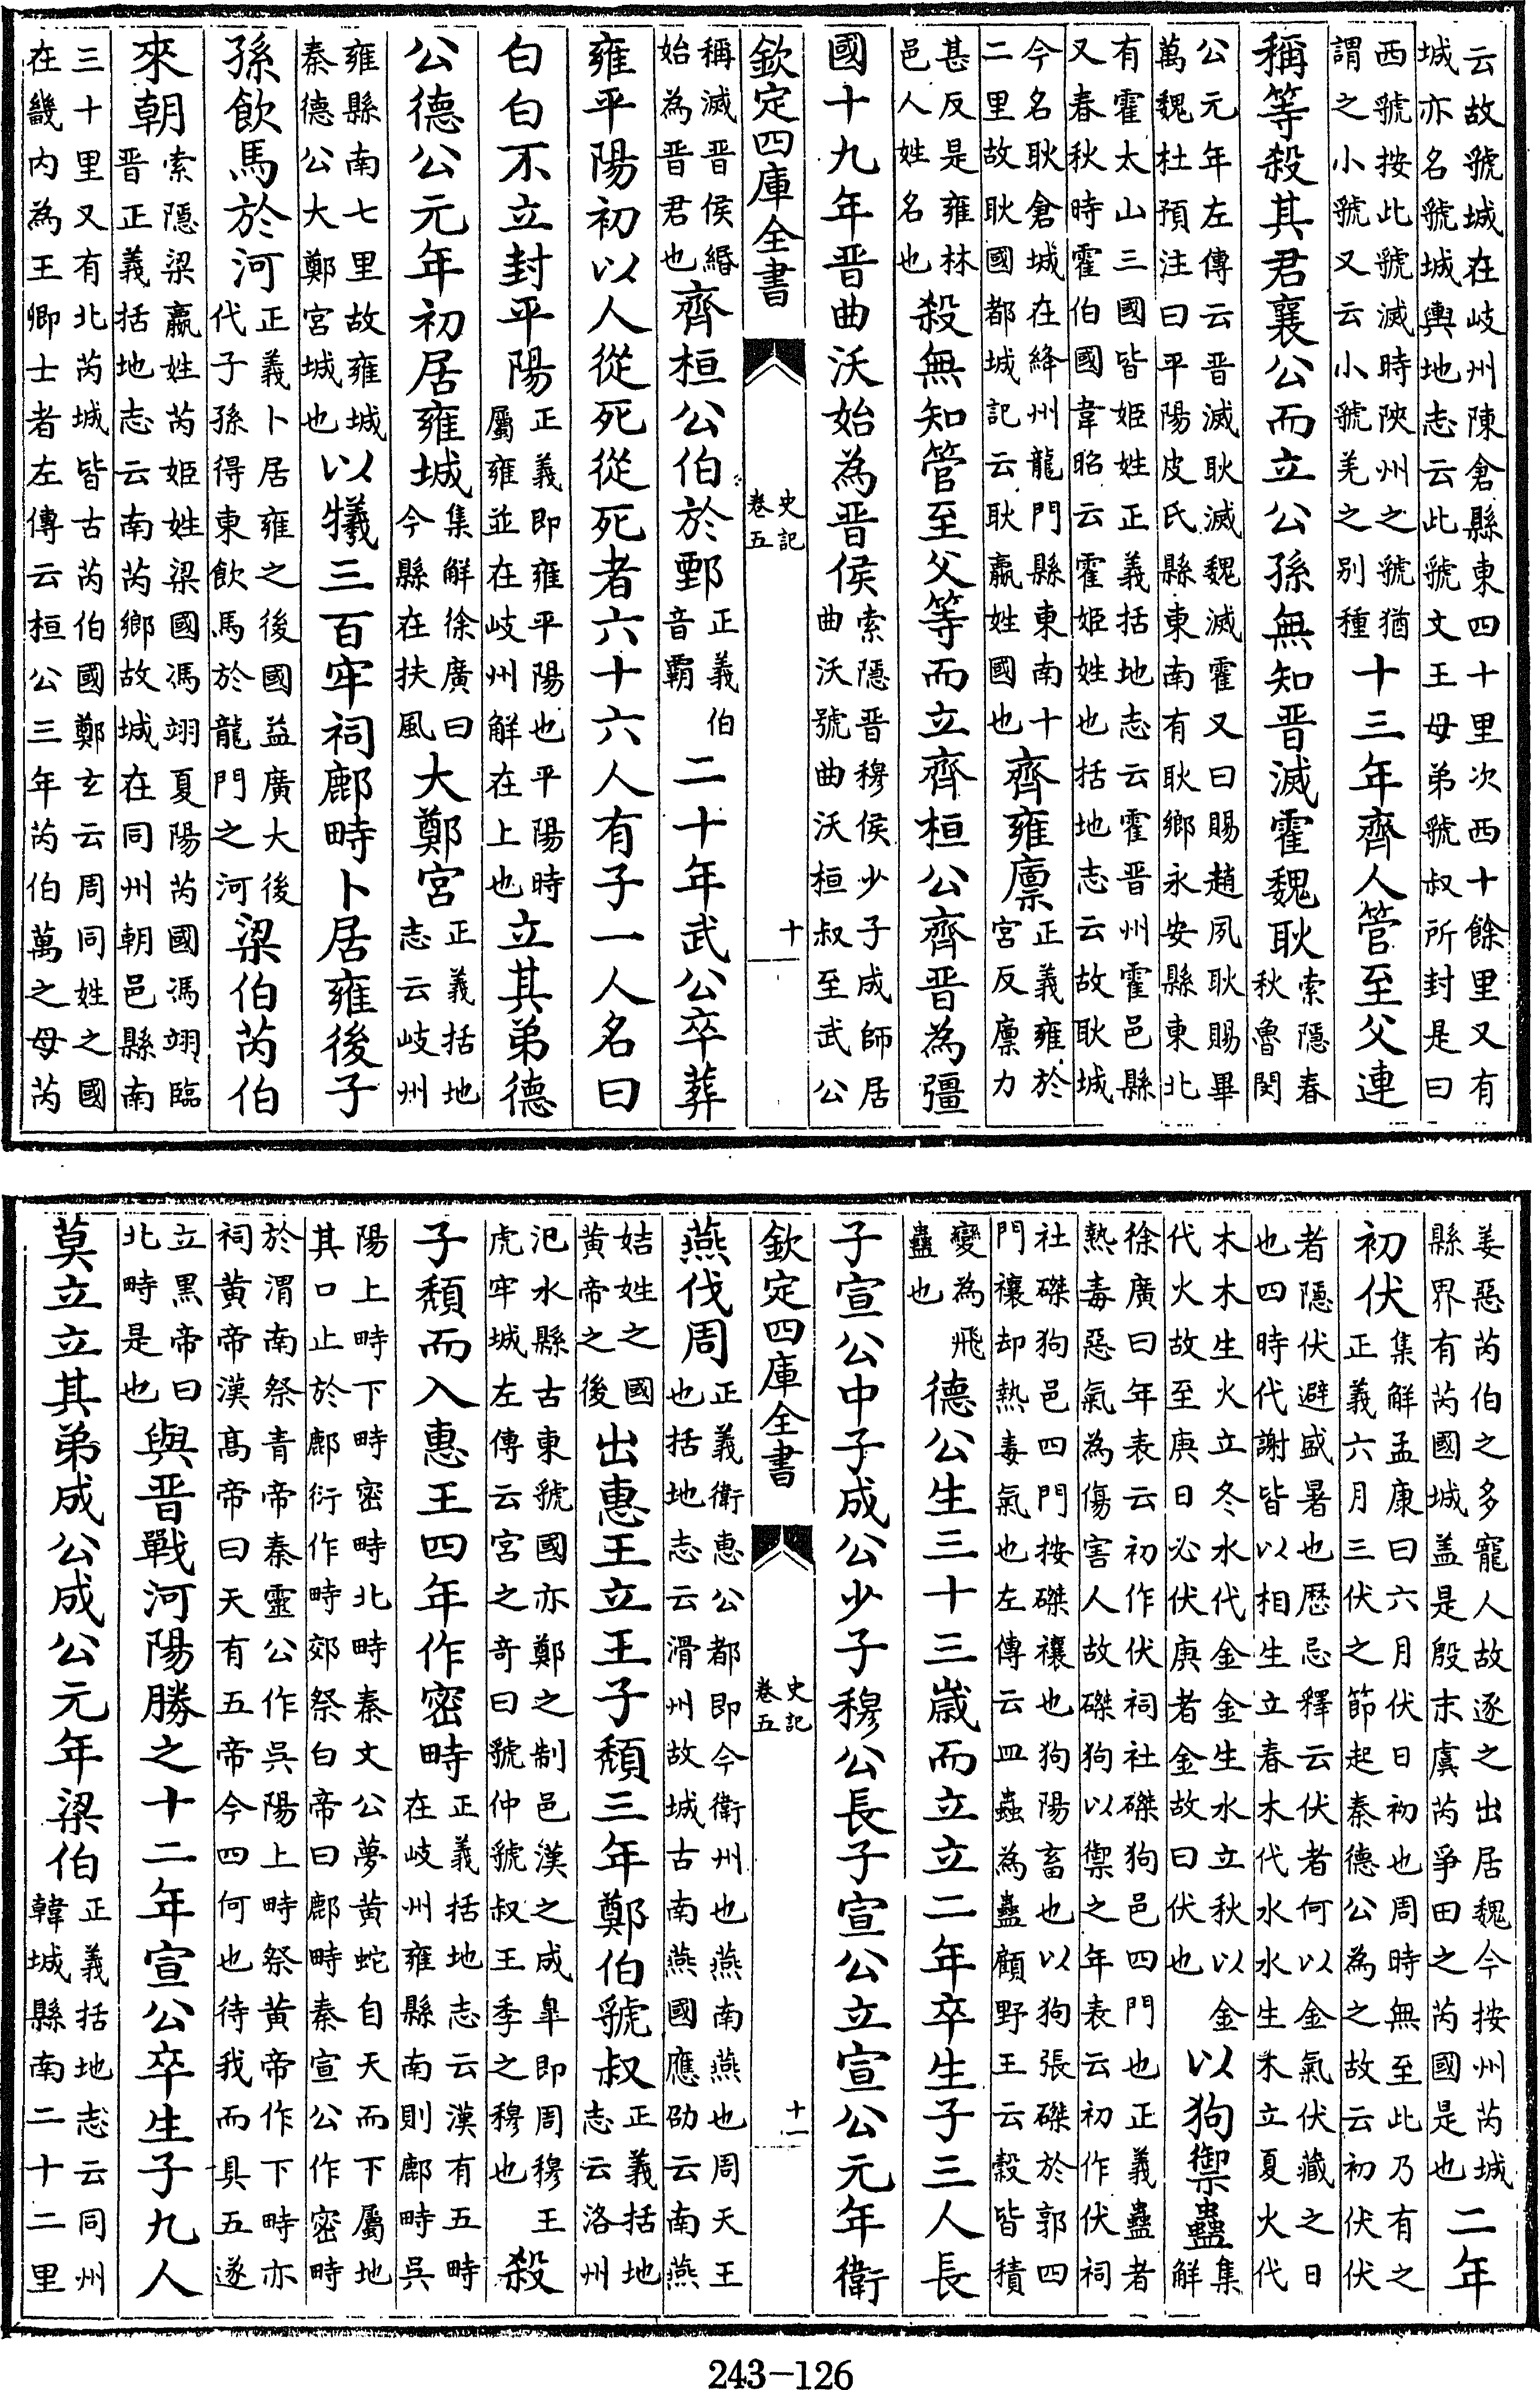 云故虢城在岐州陳倉縣東四十里次西十餘里又有
城亦名虢城輿地志云此虢文王母弟虢叔所封是曰
西虢按此虢滅時陜州之虢猶
謂之小虢又云小虢羌之别種
十三年齊人管至父連
稱等殺其君襄公而立公孫無知晉滅霍魏耿
索隱春
秋魯閔
公元年左傳云晉滅耿滅魏滅霍又曰賜趙夙耿賜畢
萬魏杜預注曰平陽皮氏縣東南有耿鄉永安縣東北
有霍太山三國皆姬姓正義括地志云霍晉州霍邑縣
又春秋時霍伯國韋昭云霍姬姓也括地志云故耿城
今名耿倉城在絳州龍門縣東南十
二里故耿國都城記云耿嬴姓國也
齊雍廩
正義雍於
宮反廩力
甚反是雍林
邑人姓名也
殺無知管至父等而立齊桓公齊晉為彊
國十九年晉曲沃始為晉侯
索隱晉穆侯少子成師居
曲沃號曲沃桓叔至武公
欽定四庫全書
史記
卷五
十
稱滅晉侯緡
始為晉君也
齊桓公伯於鄄
正義伯
音霸
二十年武公卒葬
雍平陽初以人從死從死者六十六人有子一人名曰
白白不立封平陽
正義即雍平陽也平陽時
屬雍並在岐州解在上也
立其弟德
公德公元年初居雍城
集解徐廣曰
今縣在扶風
大鄭宮
正義括地
志云岐州
雍縣南七里故雍城
秦德公大鄭宮城也
以犧三百牢祠鄜畤卜居雍後子
孫飲馬於河
正義卜居雍之後國益廣大後
代子孫得東飲馬於龍門之河
梁伯芮伯
來朝
索隱梁嬴姓芮姬姓梁國馮翊夏陽芮國馮翊臨
晉正義括地志云南芮鄉故城在同州朝邑縣南
三十里又有北芮城皆古芮伯國鄭玄云周同姓之國
在畿内為王卿士者左傳云桓公三年芮伯萬之母芮
姜惡芮伯之多寵人故逐之出居魏今按州芮城
縣界有芮國城盖是殷末虞芮爭田之芮國是也
二年
初伏
集解孟康曰六月伏日初也周時無至此乃有之
正義六月三伏之節起秦德公為之故云初伏伏
者隱伏避盛暑也歷忌釋云伏者何以金氣伏藏之日
也四時代謝皆以相生立春木代水水生木立夏火代
木木生火立冬水代金金生水立秋以金
代火故至庚日必伏庚者金故曰伏也
以狗禦蠱
集
解
徐廣曰年表云初作伏祠社磔狗邑四門也正義蠱者
熱毒惡氣為傷害人故磔狗以禦之年表云初作伏祠
社磔狗邑四門按磔禳也狗陽畜也以狗張磔於郭四
門禳却熱毒氣也左傳云皿蟲為蠱顧野王云穀皆積
變為飛
蠱也
德公生三十三歲而立立二年卒生子三人長
子宣公中子成公少子穆公長子宣公立宣公元年衛
欽定四庫全書
史記
卷五
十一
燕伐周
正義衛惠公都即今衛州也燕南燕也周天王
也括地志云滑州故城古南燕國應劭云南燕
姞姓之國
黄帝之後
出惠王立王子頽三年鄭伯虢叔
正義括地
志云洛州
氾水縣古東虢國亦鄭之制邑漢之成臯即周穆王
虎牢城左傳云宮之奇曰虢仲虢叔王季之穆也
殺
子頽而入惠王四年作密畤
正義括地志云漢有五畤
在岐州雍縣南則鄜畤吳
陽上畤下畤密畤北畤秦文公夢黄蛇自天而下屬地
其口止於鄜衍作畤郊祭白帝曰鄜畤秦宣公作密畤
於渭南祭青帝秦靈公作吳陽上畤祭黄帝作下畤亦
祠黄帝漢髙帝曰天有五帝今四何也待我而具五遂
立黑帝曰
北畤是也
與晉戰河陽勝之十二年宣公卒生子九人
莫立立其弟成公成公元年梁伯
正義括地志云同州
韓城縣南二十二里
243-126